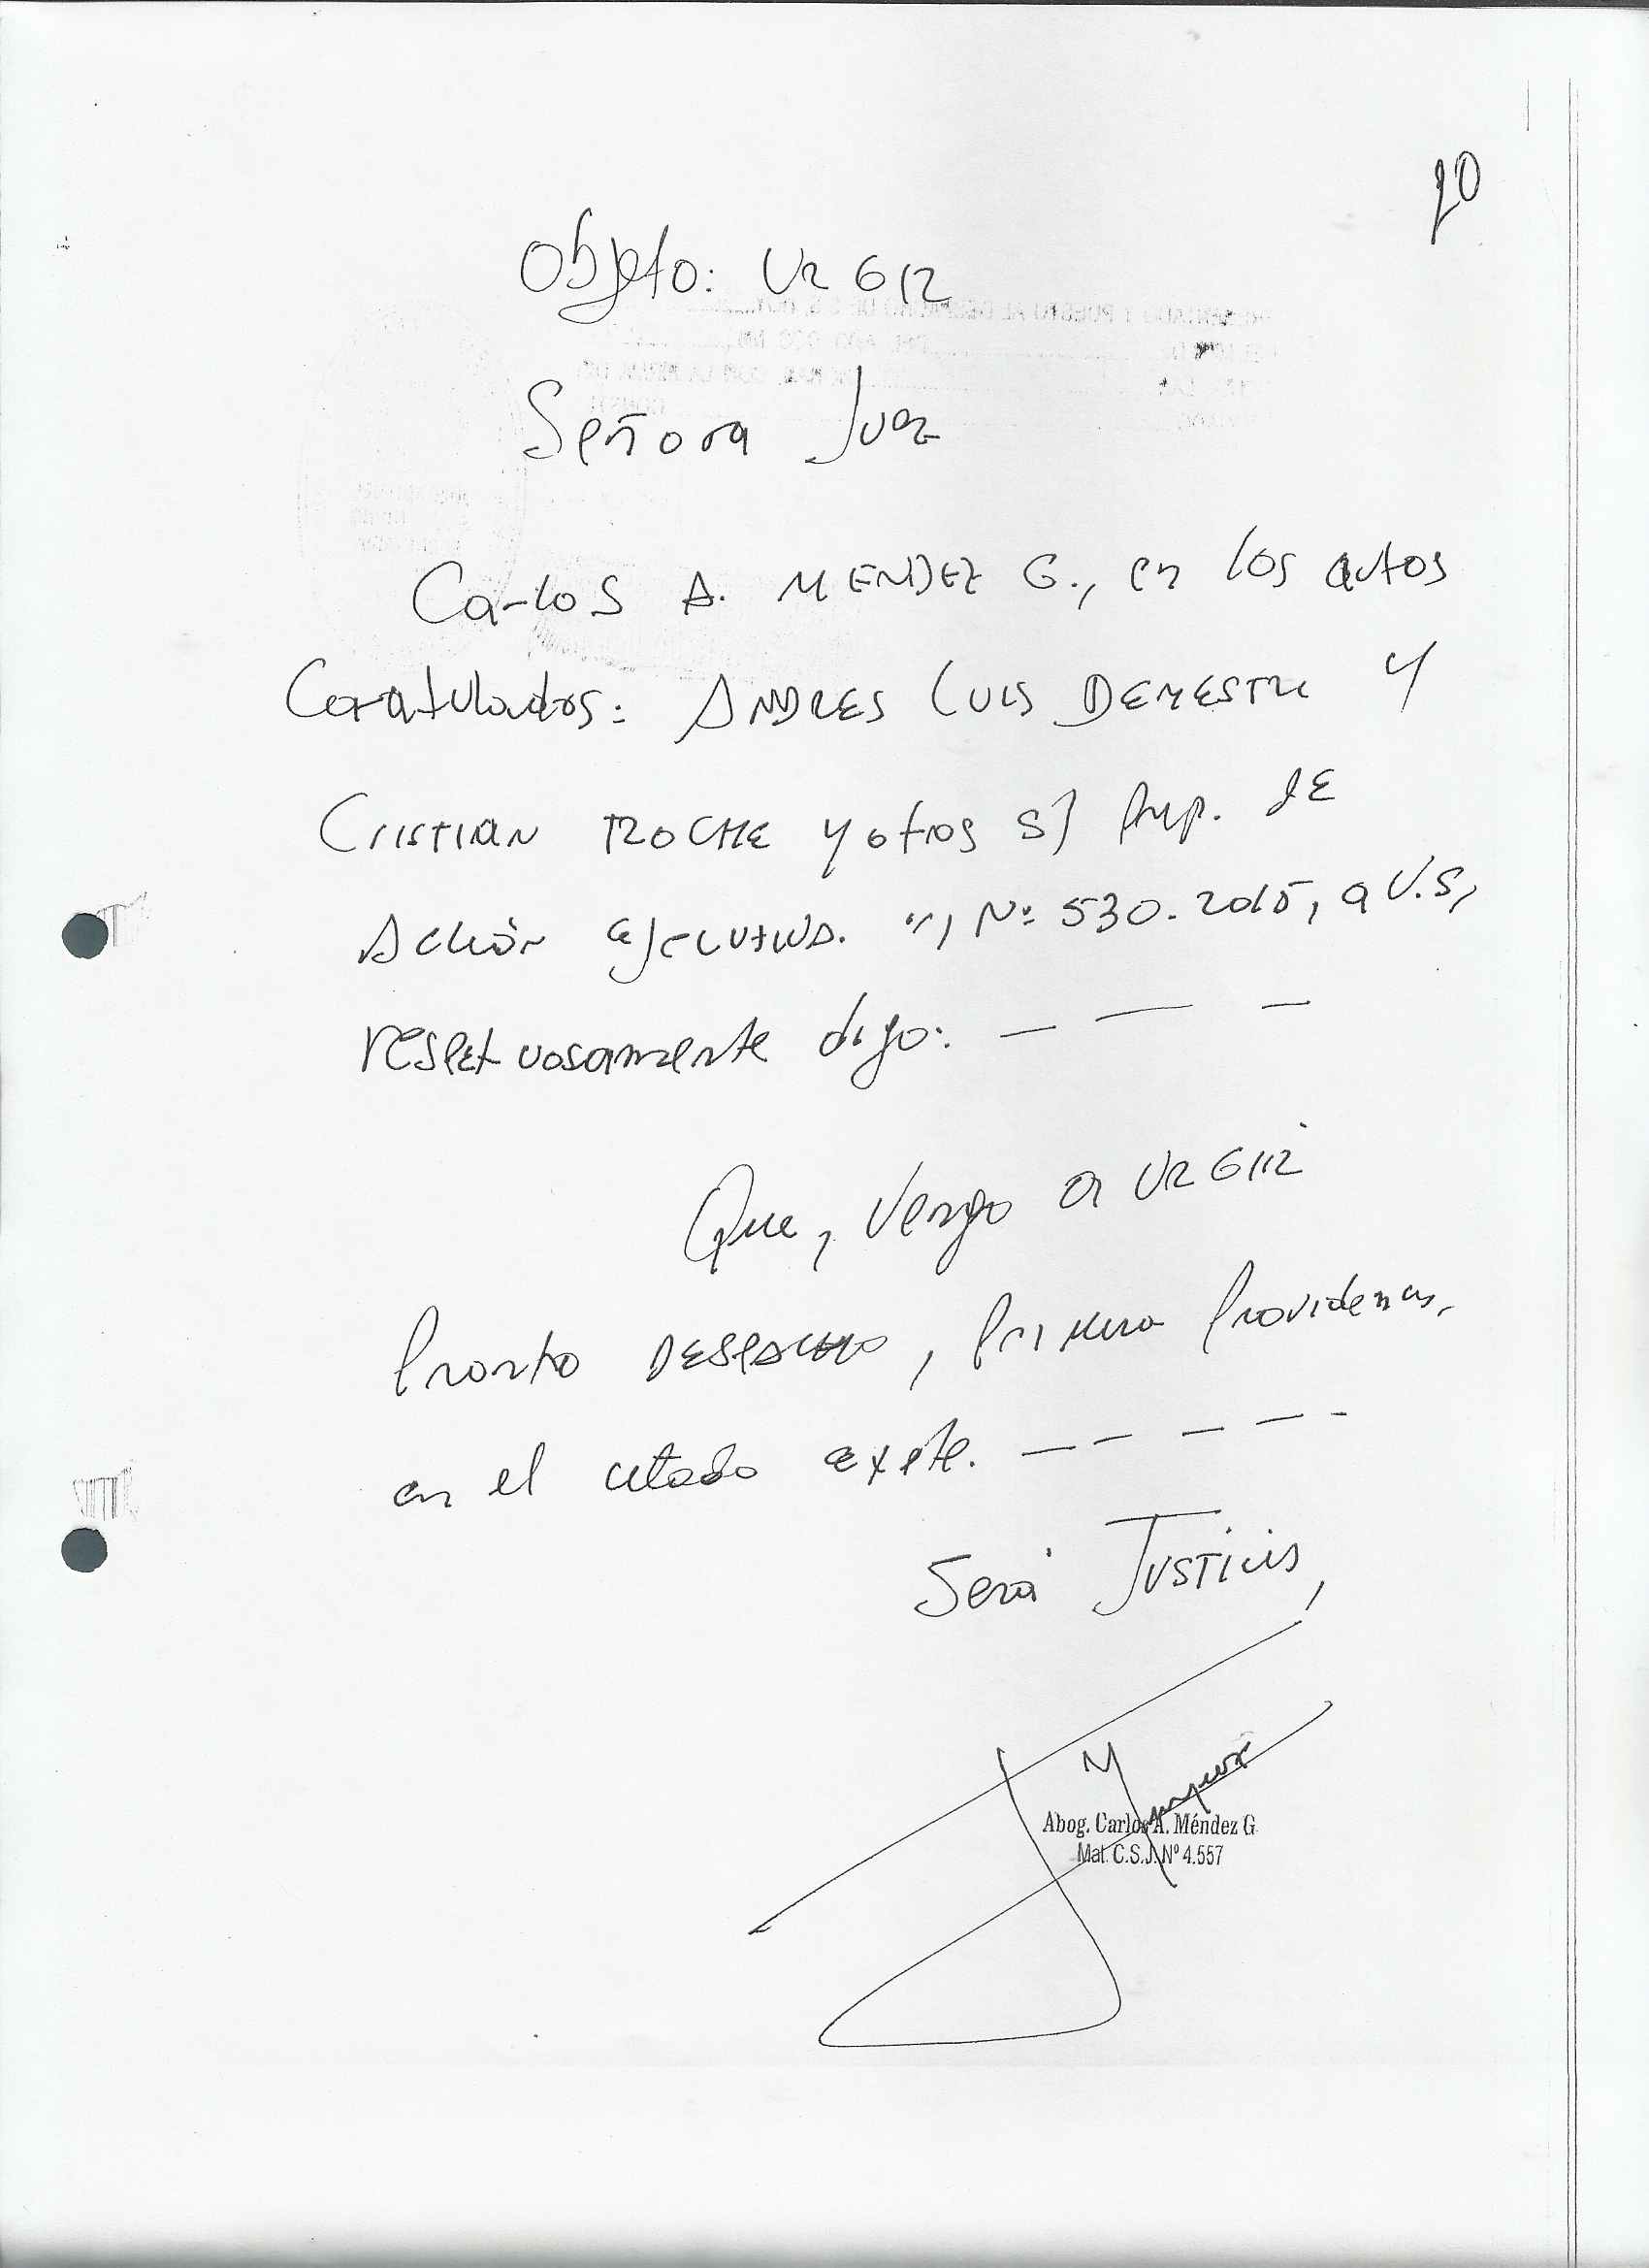 20
Objeto: URGIR
Señora Juez
Carlos A. MENDEZ G., en los autos
Caratulados: ANDRES LUIS DEMESTRI Y
CRISTIAN ROCHE y otros s/ Prep. DE
Acción Ejecutiva. ", Nº 530. 2015, a V.S,
respetuosamente digo: — — —
Que, vengo a URGIR
Pronto DESPACHO, Primera Providencia,
en el citado expte. — — — — -
Será JUSTICIA,
Abog. Carlos A. Méndez G
Mat. C.S.J. Nº 4.557